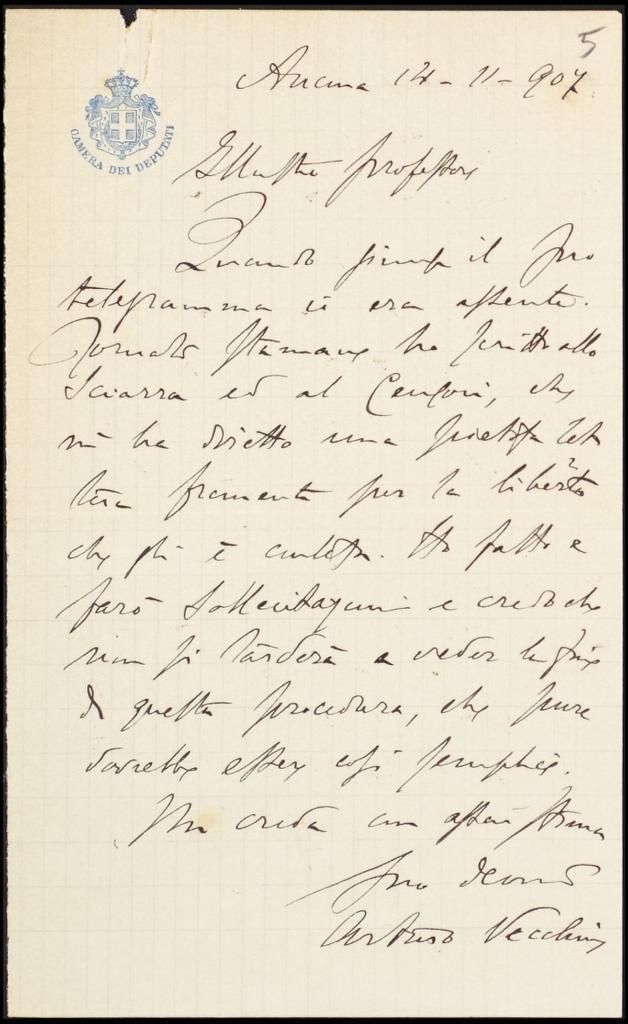 5
Ancona 14-11-907.
CAMERA DEI DEPUTATI
Illustre professore
Quando giunse il suo
telegramma io era assente.
Tornato stamane ho scritto allo
Sciarra ed al, che
mi ha diretto una let
tera per la libertà
che gli è. Ho fatto e
farò sollecitazioni e credo che
non si tarderà a veder la fine
di questa procedura, che pure
dovrebbe esser così semplice.
Mi creda con assai stima
Suo
Arturo Vecchini